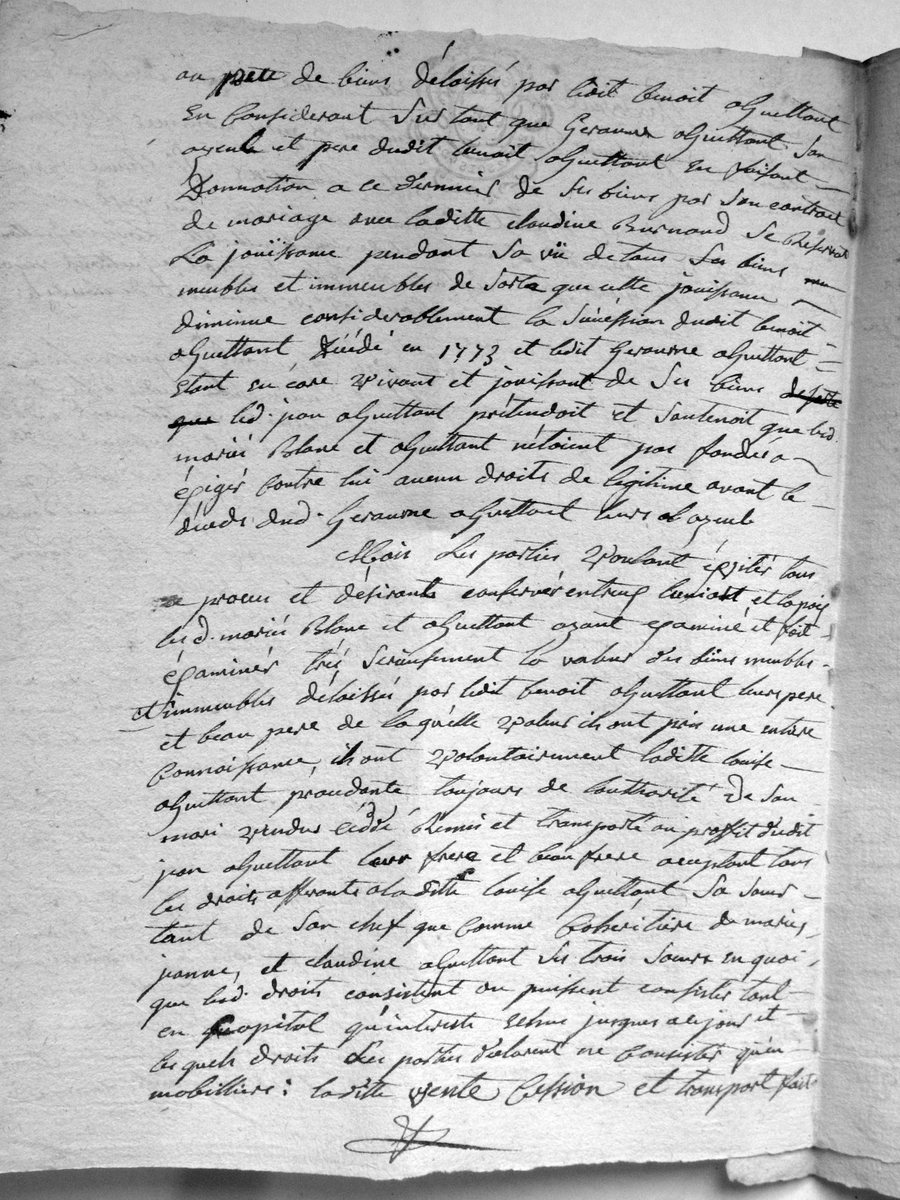 au  de biens délaissés par ledit benoit aguettant
En Considerant Sur tant que Geraume aguettant Son
ayeul et pere dudit benoit aguettant En faisant
Donnation a ce dernier de Ses biens par Son contract
de mariage avec laditte claudine Burnand Se Reservat
La jouissance pendant Sa vië de tous Ses biens
meubles et immeubles de Sorte que cette jouissance
diminue considerablement la Súéssion dudit benoit
aguettant Déédé en 1773 et ledit Geraume aguettant
Etant En core vivant et jouissant de Ses biens
led. jean aguettant prétendoit et Soutenoit que led.
mariés Blanc et aguettant nétoient pas fondés a
éxigér Contre lui aucun droits de légitime avant le
déceds dud. Geraume aguettant leurs ayeul
Mais Les parties voulant évitér tous
proces et désirants conservér entreux lunion et la paix
les d. mariés Blanc et aguettant ayant éxaminé et fait
éxaminér trés Serieusement la valeur des biens meubles
et immeubles délaissés par ledit benoit aguettant leurs pere
et beau pere de laquélle valeur ils ont pris une entiere
Connaissance, ils ont volontairement laditte louise
aguettant procedante toujours de lauthorité de Son
mari vendus céddé Remis et transporté au proffit dudit
jean aguettant leur frere et beau frere aceptant tous
les droits afferants a laditte louise aguettant Sa Soeur
tant de Son chef que Comme Coheritiere de marie,
jeanne, et claudine aguettant Ses trois Soeurs En quoi
que led. droits consistent ou puissent consister tant
en Capital qu'interets Echus jusques a ce jour et
lesquels droits Les parties déclarent ne Consister qu'en
mobilliers: laditte vente Cession et transport faits